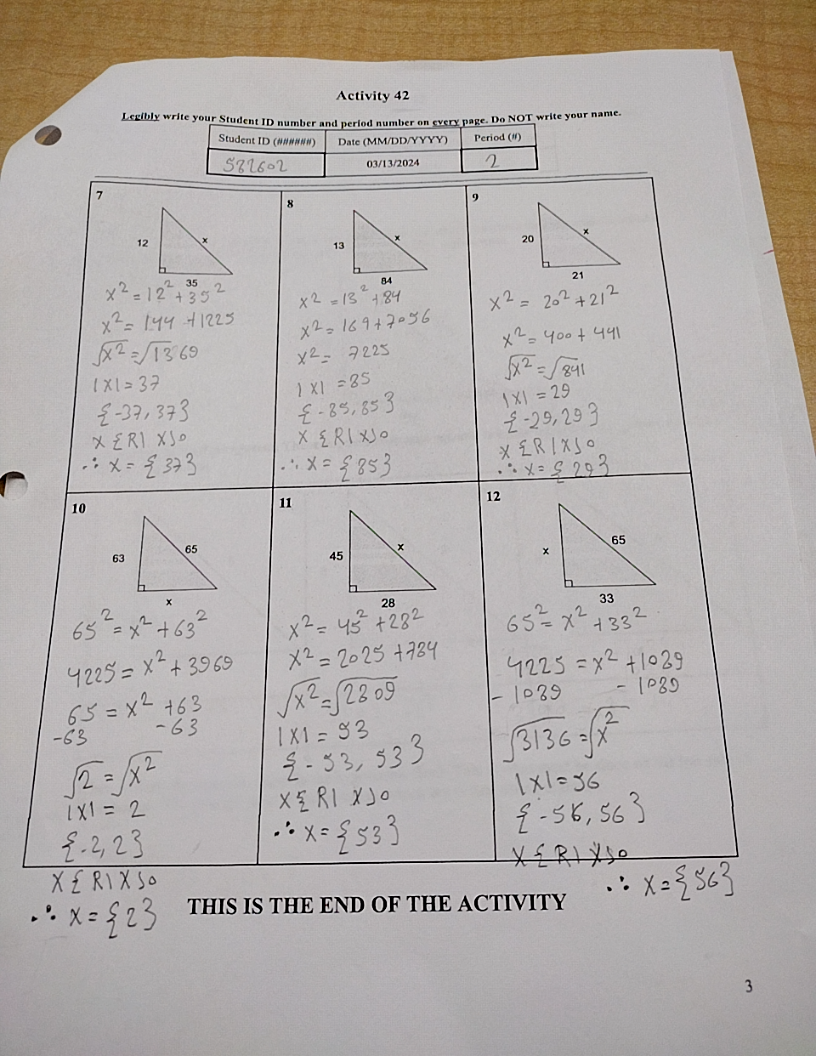 Activity 42
Legibly write your Student ID number and period number on every page. Do NOT write your name.
Student ID (######) Date (MM/DD/YYYY) Period (#)
582602 03/13/2024 2
7
12
x
35
x² = 12² + 35²
x² = 144 + 1225
√x² = √1369
|x| = 37
{-37, 37}
x ε R | x > 0
∴ x = {37}
8
13
x
84
x² = 13² + 84
x² = 169 + 7056
x² = 7225
|x| = 85
{-85, 85}
x ε R | x > 0
∴ x = {85}
9
20
x
21
x² = 20² + 21²
x² = 400 + 441
√x² = √841
|x| = 29
{-29, 29}
x ε R | x > 0
∴ x = {29}
10
63
65
x
65² = x² + 63²
4225 = x² + 3969
65 = x² + 63
-63 -63
√2 = √x²
|x| = 2
{-2, 2}
x ε R | x > 0
∴ x = {2}
11
45
x
28
x² = 45² + 28²
x² = 2025 + 784
√x² = √2809
|x| = 53
{-53, 53}
x ε R | x > 0
∴ x = {53}
12
x
65
33
65² = x² + 33²
4225 = x² + 1089
- 1089 - 1089
√3136 = √x²
|x| = 56
{-56, 56}
x ε R | x > 0
∴ x = {56}
THIS IS THE END OF THE ACTIVITY
3